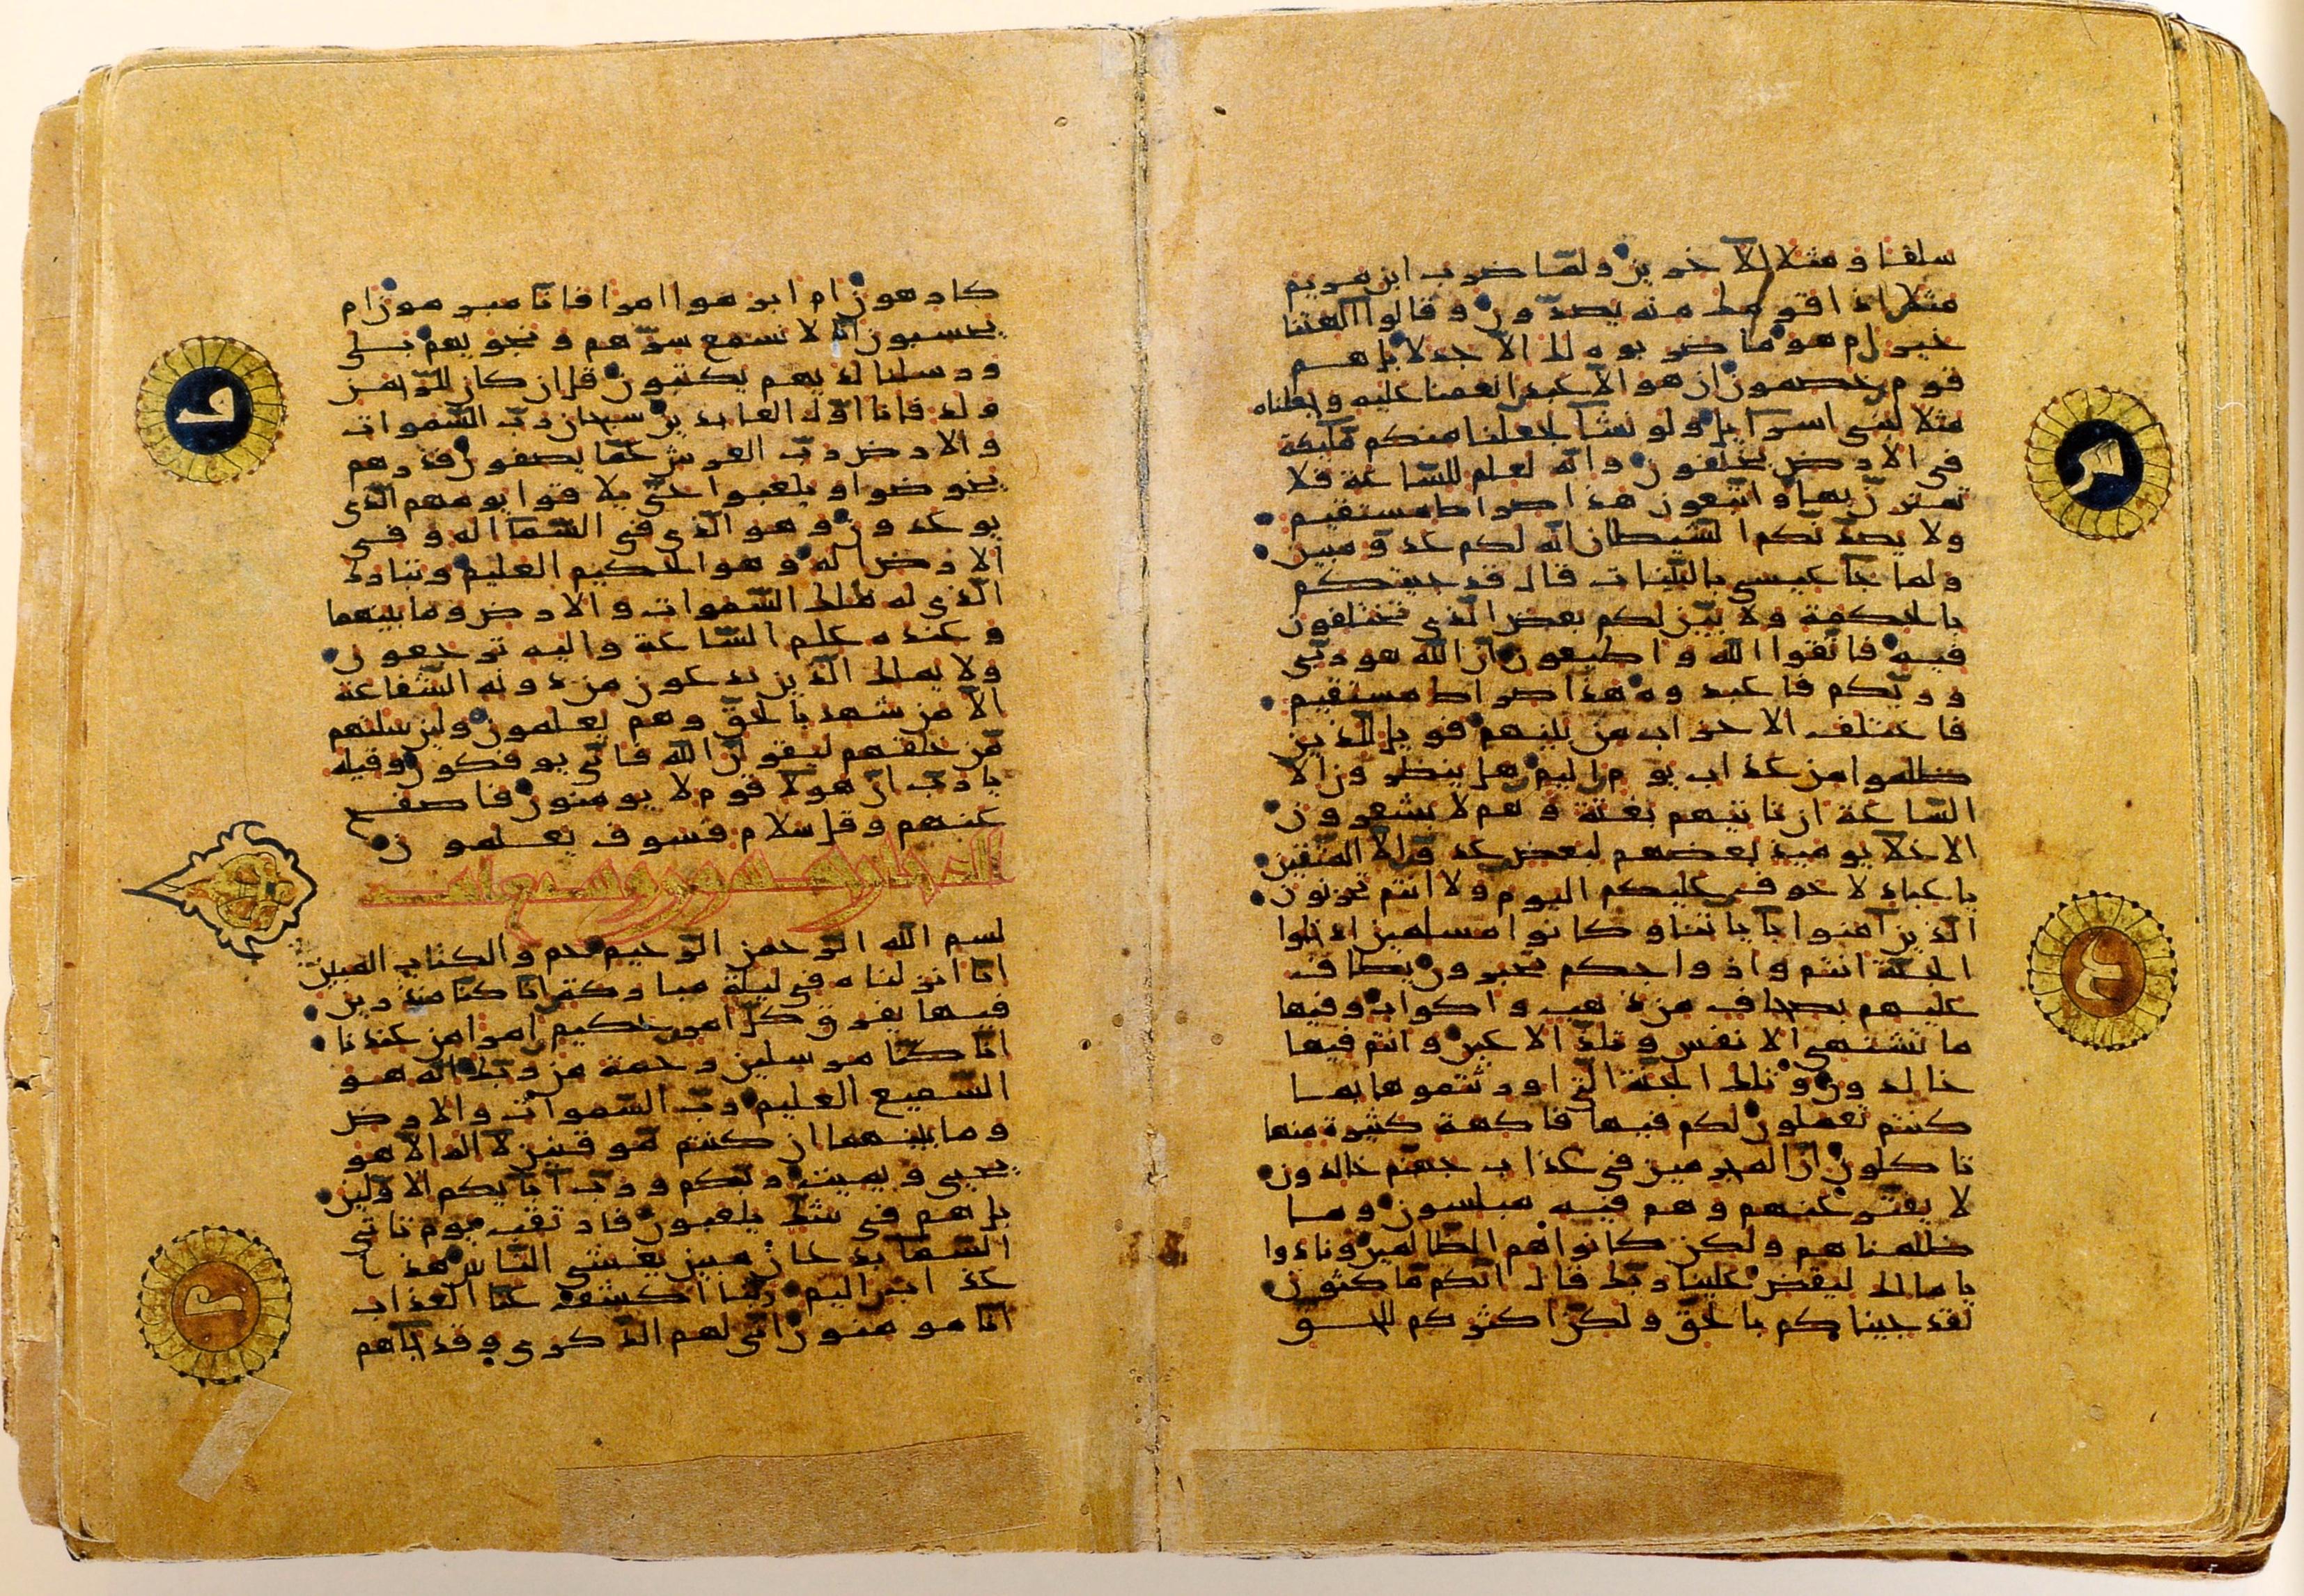 سلفا و مثلا للآخرين ولمّا ضرب ابن مريم
مثلا اذا قومك منه يصدّون وقالوا االهتنا
خير ام هو ما ضربوه لك الّا جدلا بل هم
قوم خصمون ان هو الّا عبد انعمنا عليه وجعلناه
مثلا لبنى اسرايل ولو نشا لجعلنا منكم مليكة
فى الارض يخلفون وانّه لعلم للسّاعة فلا
تمترنّ بها واتّبعون هذا صراط مستقيم
ولا يصدّنّكم الشّيطان انّه لكم عدوّ مبين
ولما جا عيسى بالبيّنات قال قد جيتكم
بالحكمة ولابيّن لكم بعض الذى تختلفون
فيه فاتّقوا اللّه واطيعون انّ اللّه هو ربّى
وربّكم فاعبدوه هذا صراط مستقيم
فاختلف الاحزاب من بينهم فويل للّذين
ظلموا من عذاب يوم اليم هل ينظرون الّا
السّاعة ان تاتيهم بغتة وهم لا يشعرون
الاخلا يوميذ بعضهم لبعض عدوّ الّا المتّقين
يا عباد لا خوف عليكم اليوم ولا انتم تحزنون
الّذين آمنوا بآياتنا وكانوا مسلمين ادخلوا
الجنّة انتم وازواجكم تحبرون يطاف
عليهم بصحاف من ذهب واكواب وفيها
ما تشتهى الانفس وتلذّ الاعين وانتم فيها
خالدون وتلك الجنّة الّتى اورثتموها بما
كنتم تعملون لكم فيها فاكهة كثيرة منها
تاكلون انّ المجرمين فى عذاب جهنّم خالدون
لا يفتّر عنهم وهم فيه مبلسون وما
ظلمناهم ولكن كانوا هم الظّالمين ونادوا
يا مالك ليقض علينا ربّك قال انّكم مّاكثون
لقد جيناكم بالحقّ ولكنّ اكثركم للحقّ
س
ع
كارهون ام ابرموا امرا فانّا مبرمون ام
يحسبون انّا لا نسمع سرّهم ونجويهم بلى
ورسلنا لديهم يكتبون قل ان كان للرّحمن
ولد فانا اوّل العابدين سبحان ربّ السّموات
والارض ربّ العرش عمّا يصفون فذرهم
يخوضوا ويلعبوا حتّى يلاقوا يومهم الّذى
يوعدون وهو الّذى فى السّما اله وفى
الارض اله وهو الحكيم العليم وتبارك
الّذى له ملك السّموات والارض وما بينهما
وعنده علم السّاعة واليه ترجعون
ولا يملك الّذين يدعون من دونه الشّفاعة
الّا من شهد بالحقّ وهم يعلمون ولين سلتهم
مّن خلقهم ليقولنّ اللّه فانّى يوفكون وقيله
يا ربّ انّ هولا قوم لا يومنون فاصفح
عنهم وقل سلام فسوف يعلمون
الدخان
بسم اللّه الرّحمن الرّحيم حم والكتاب المبين
انّا انزلناه فى ليلة مباركة انّا كنّا منذرين
فيها يفرق كلّ امر حكيم امرا من عندنا
انّا كنّا مرسلين رحمة من ربّك انّه هو
السّميع العليم ربّ السّموات والارض
وما بينهما ان كنتم مّوقنين لا اله الّا هو
يحيى ويميت ربّكم وربّ آبآيكم الاوّلين
بل هم فى شكّ يلعبون فارتقب يوم تاتى
السّما بدخان مبين يغشى النّاس هذا
عذاب اليم ربّنا اكشف عنّا العذاب
انّا مومنون انّى لهم الذّكرى وقد جآهم
ف